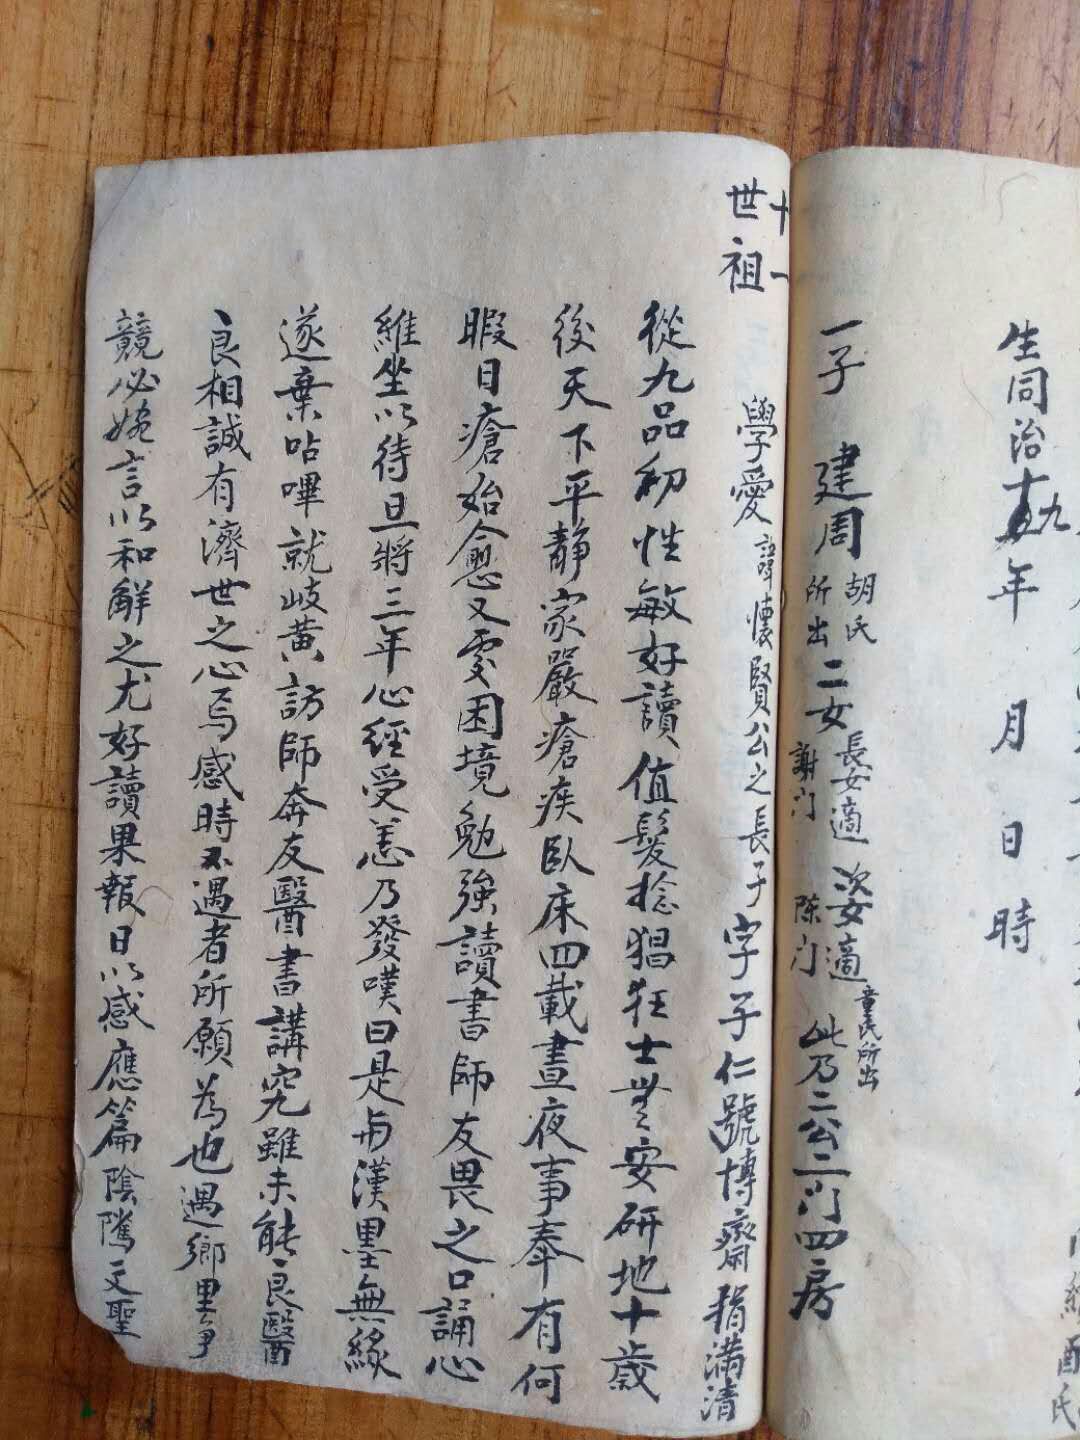 生同治十九年 月 日 時
一子 建周 胡氏所出 二女 長女適謝门 次女適陈门 童氏所出 此乃二公二门四房
十一世祖
學愛 諱懷賢公之長子 字子仁號博齋 捐滿清
從九品初性敏好讀值髮捻猖狂士無安研地十歲
後天下平靜家嚴瘡疾臥床四載晝夜事奉有何
暇日瘡始愈又受困境勉強讀書師友畏之口誦心
維坐以待旦將三年心經受恙乃發嘆曰是与漢墨無緣
遂棄咕嗶就岐黃訪師奔友醫書講究雖未能良醫
良相誠有濟世之心焉感時不遇者所願為也遇鄉里爭
競必婉言以和解之尤好讀果報日以感應篇陰隲文聖